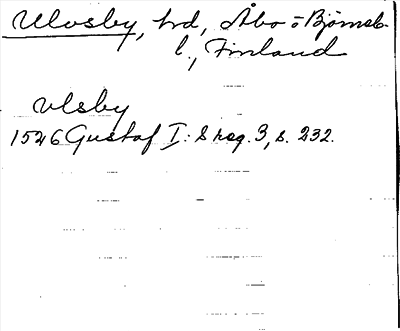 Ulvsby, hd, Åbo o Björneb.
l., Finland
vlsby
1546 Gustaf I: s reg. 3, s. 232.